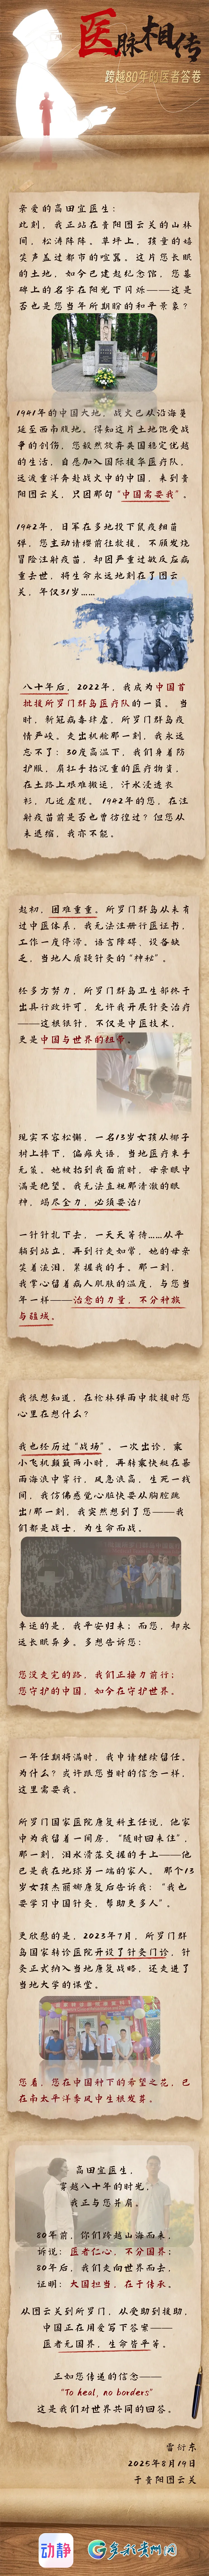 医脉相传
跨越80年的医者答卷
亲爱的高田宜医生：
此刻，我正站在贵阳图云关的山林
间，松涛阵阵。草坪上，孩童的嬉
笑声盖过都市的喧嚣，这片您长眠
的土地，如今已建起纪念馆，您墓
碑上的名字在阳光下闪烁——这是
否也是您当年所期盼的和平景象？
1941年的中国大地，战火已从沿海蔓
延至西南腹地。得知这片土地饱受战
争的创伤，您毅然放弃英国稳定优越
的生活，自愿加入国际援华医疗队，
远渡重洋奔赴战火中的中国，来到贵
阳图云关，只因那句“中国需要我”。
1942年，日军在多地投下鼠疫细菌
弹，您主动请缨前往救援，不顾发烧
冒险注射疫苗，却因严重过敏反应病
重去世，将生命永远地刻在了图云
关，年仅31岁……
八十年后，2022年，我成为中国首
批援所罗门群岛医疗队的一员。当
时，新冠病毒肆虐，所罗门群岛疫
情严峻。走出机舱那一刻，我永远
忘不了：30度高温下，我们身着防
护服，肩扛手抬沉重的医疗物资，
在土路上艰难搬运，汗水浸透衣
衫，几近虚脱。1942年的您，在注
射疫苗前是否也曾彷徨过？但您从
未退缩，我亦不能。
起初，困难重重。所罗门群岛从未有
过中医体系，我无法注册行医证书，
工作一度停滞。语言障碍，设备缺
乏，当地人质疑针灸的“神秘”。
经多方努力，所罗门群岛卫生部终于
出具行政许可，允许我开展针灸治疗
——这根银针，不仅是中医技术，
更是中国与世界的纽带。
现实不容松懈，一名13岁女孩从椰子
树上摔下，偏瘫失语，当地医疗束手
无策。她被抬到我面前时，母亲眼中
满是绝望。我无法直视那清澈的眼
神，竭尽全力，必须要治！
一针针扎下去，一天天等待……从平
躺到站立，再到行走如常，她的母亲
笑着流泪，紧握我的手。那一刻，
我掌心留着病人肌肤的温度，与您当
年一样——治愈的力量，不分种族
与疆域。
我很想知道，在枪林弹雨中救援时您
心里在想什么？
我也经历过“战场”。一次出诊，乘
小飞机颠簸两小时，再转乘快艇在暴
雨海浪中穿行，风急浪高，生死一线
间，我仿佛感觉心脏快要从胸腔跳
出！那一刻，我突然想到了您——我
们都是战士，为生命而战。
幸运的是，我平安归来；而您，却永
远长眠异乡。多想告诉您：
您没走完的路，我们正接力前行；
您守护的中国，如今在守护世界。
一年任期将满时，我申请继续留任。
为什么？或许跟您当时的信念一样，
这里需要我。
所罗门国家医院康复科主任说，他家
中为我留着一间房，“随时回来住”，
那一刻，泪水滑落交握的手上——他
已是我在地球另一端的家人。那个13
岁女孩杰丽娜康复后告诉我：“我也
要学习中国针灸，帮助更多人”。
更欣慰的是，2023年7月，所罗门群
岛国家转诊医院开设了针灸门诊，针
灸正式纳入当地康复战略，还走进了
当地大学的课堂。
您看，您在中国种下的希望之花，已
在南太平洋季风中生根发芽。
高田宜医生，
穿越八十年的时光，
我正与您并肩。
80年前，你们跨越山海而来，
诉说：医者仁心，不分国界；
80年后，我们走向世界而去，
证明：大国担当，在于传承。
从图云关到所罗门，从受助到援助，
中国正在用爱写下答案——
医者无国界，生命皆平等。
正如您传递的信念——
“To heal, no borders”
这是我们对世界共同的回答。
雷衍东
2025年8月19日
于贵阳图云关
动静
多彩贵州网